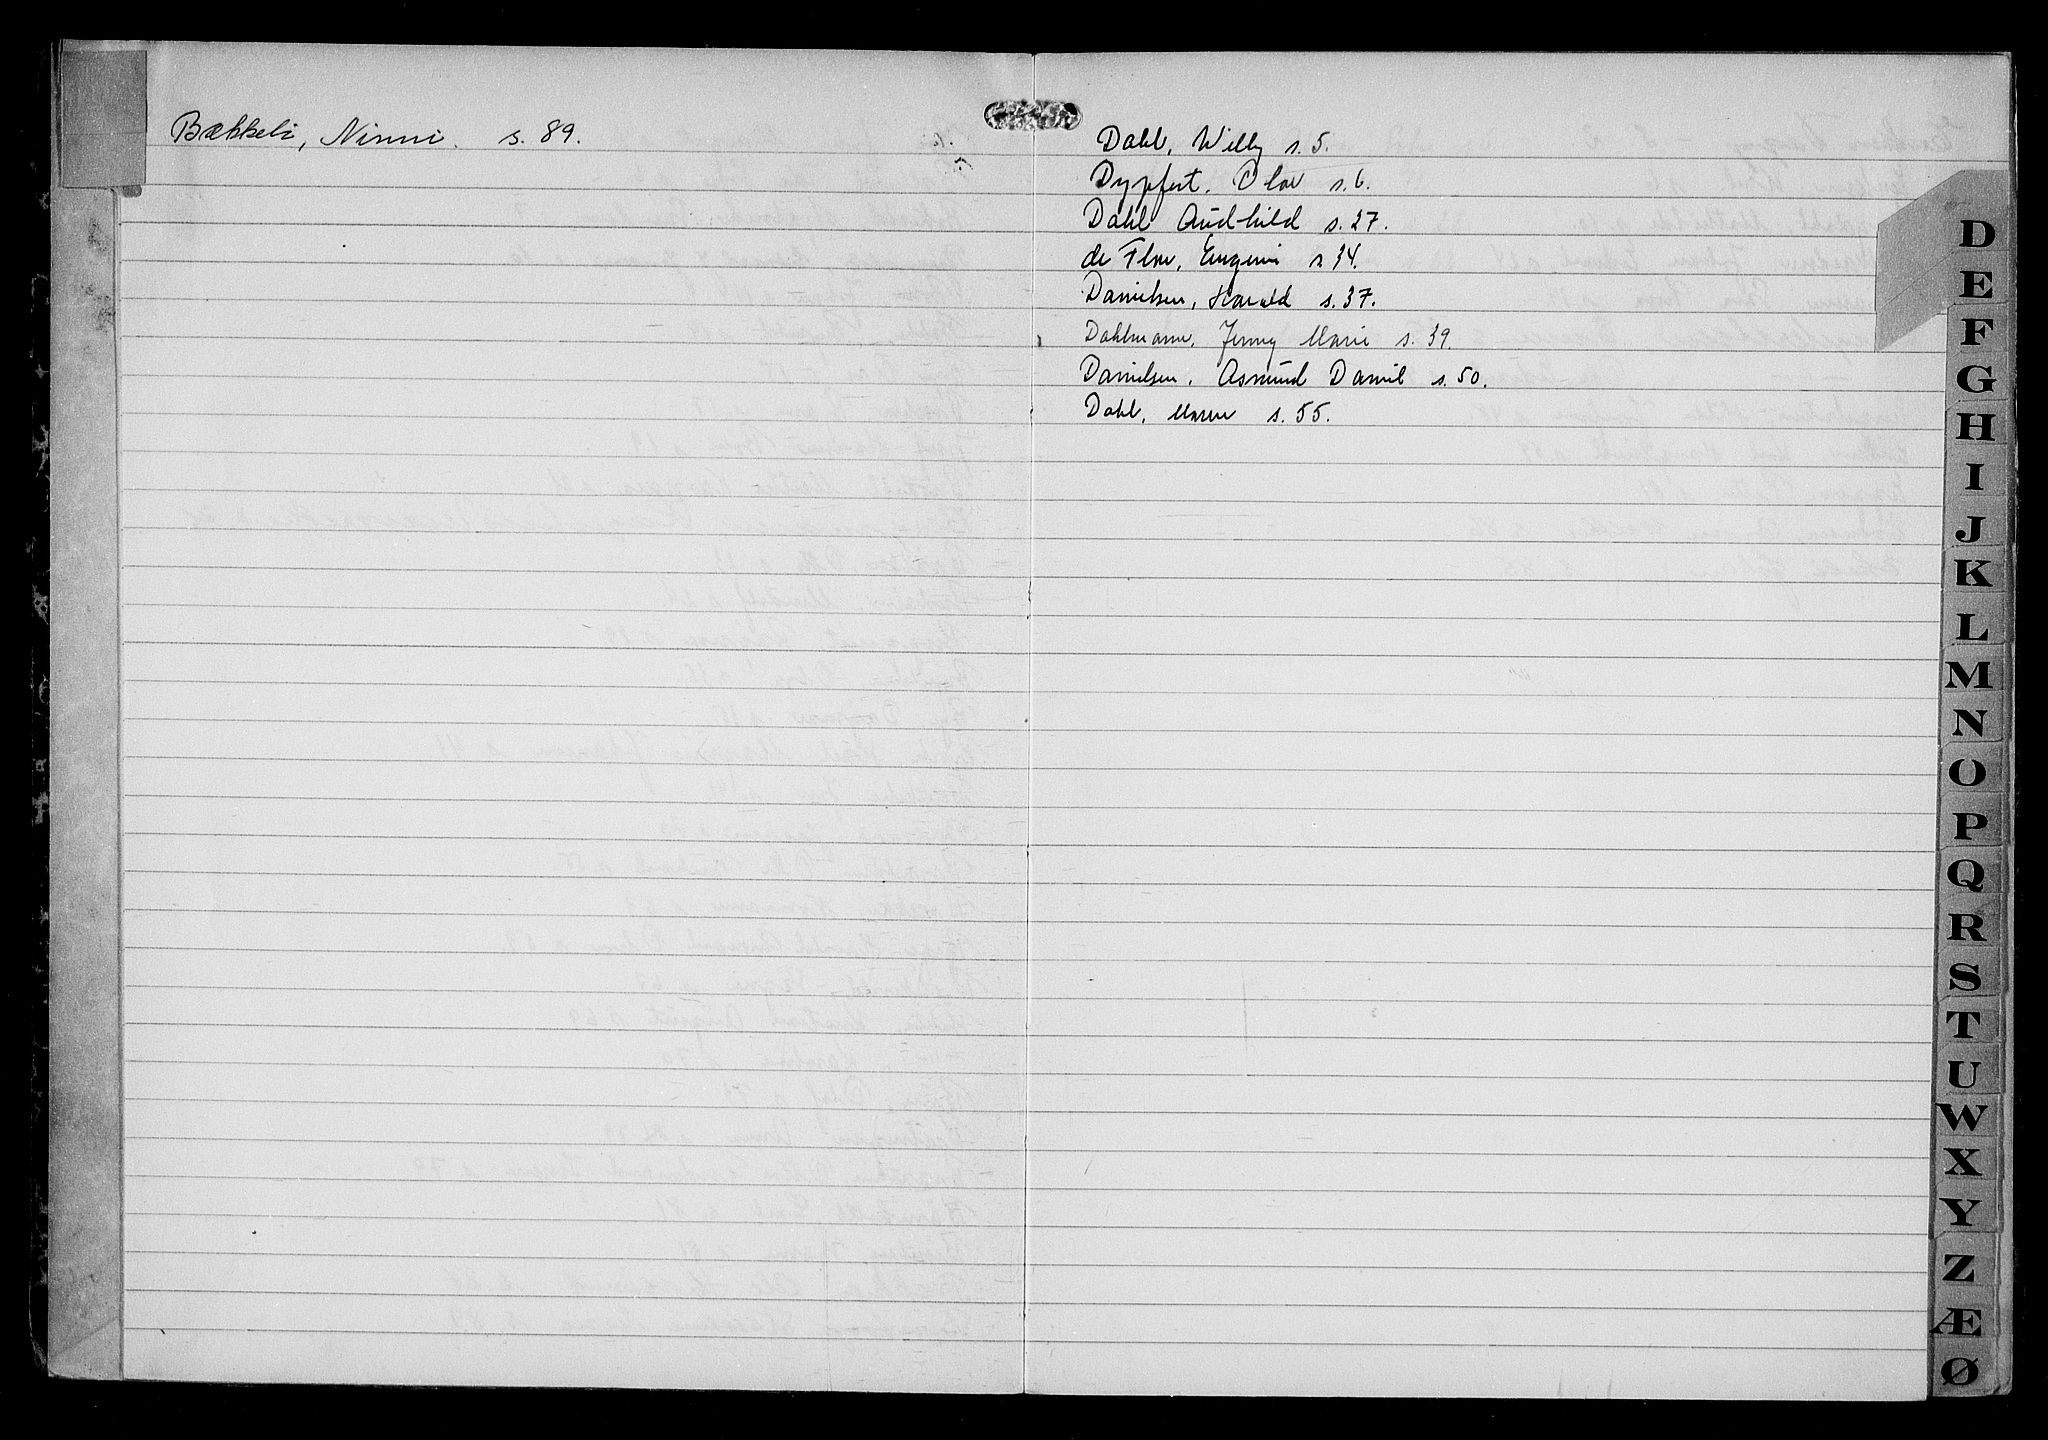 Bækkeli, Ninni. s. 89.
Dahl, Willy s. 5.
Dypfest, Olav s. 6.
Dahl Audhild s. 27.
de Flon, Eugenie s. 34.
Danielsen, Harald s. 37.
Dahlmann, Jenny Marie s. 39.
Danielsen, Asmund Daniel s. 50.
Dahl, Maren s. 55.
D
E
F
G
H
I
J
K
L
M
N
O
P
Q
R
S
T
U
W
X
Y
Z
Æ
Ø